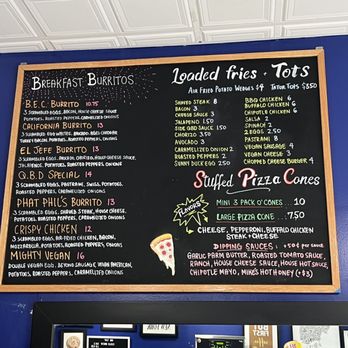 BREAKFAST BURRITOS
B.E.C. BURRITO 10.75
3 SCRAMBLED EGGS, BACON, HOUSE CHEESE SAUCE
POTATOES, ROASTED PEPPERS, CARAMELIZED ONIONS
CALIFORNIA BURRITO 13
3 SCRAMBLED EGG WHITES, AVOCADO, AGED CHEDDAR
TURKEY BACON, POTATOES, ROASTED PEPPERS, ONIONS
EL JEFE BURRITO 13
3 SCRAMBLED EGGS, CHORIZO, HOUSE CHEESE SAUCE,
POTATOES, ROASTED PEPPERS, CARAMELIZED ONIONS
Q.B.D SPECIAL 14
3 SCRAMBLED EGGS, PASTRAMI, SWISS, POTATOES,
ROASTED PEPPERS, CARAMELIZED ONIONS
PHAT PHIL'S BURRITO 13
3 SCRAMBLED EGGS, SHAVED STEAK, HOUSE CHEESE
POTATOES, ROASTED PEPPERS, CARAMELIZED ONIONS
CRISPY CHICKEN 12
3 SCRAMBLED EGGS, AIR-FRIED CHICKEN, BACON,
MOZZARELLA, POTATOES, ROASTED PEPPERS, ONIONS
MIGHTY VEGAN 16
DOUBLE VEGAN EGG, BEYOND SAUSAGE, VEGAN AMERICAN,
POTATOES, ROASTED PEPPERS, CARAMELIZED ONIONS
Loaded fries + Tots
AIR FRIED POTATO WEDGES $4 TATER TOTS $3.50
SHAVED STEAK 8
BACON 3
CHEESE SAUCE 3
JALAPENO 1.50
SIDE QBD SAUCE 1.50
CHORIZO 3.50
AVOCADO 3
CARAMELIZED ONION 2
ROASTED PEPPERS 2
SUNNY DUCK EGG 2.50
BBQ CHICKEN 6
BUFFALO CHICKEN 6
CHIPOTLE CHICKEN 6
SALSA 2
SPINACH 2
2 EGGS 2.50
PASTRAMI 8
VEGAN SAUSAGE 4
VEGAN CHEESE 3
CHOPPED CHEESE BURGER 4
Stuffed Pizza Cones
FLAVORS
MINI 3 PACK O' CONES .. 10
LARGE PIZZA CONE .... 7.50
CHEESE, PEPPERONI, BUFFALO CHICKEN
STEAK + CHEESE
DIPPING SAUCES : +.50¢ per sauce
GARLIC PARM BUTTER, ROASTED TOMATO SAUCE,
RANCH, HOUSE CHEESE SAUCE, HOUSE HOT SAUCE,
CHIPOTLE MAYO, MIKE'S HOT HONEY (+$3)